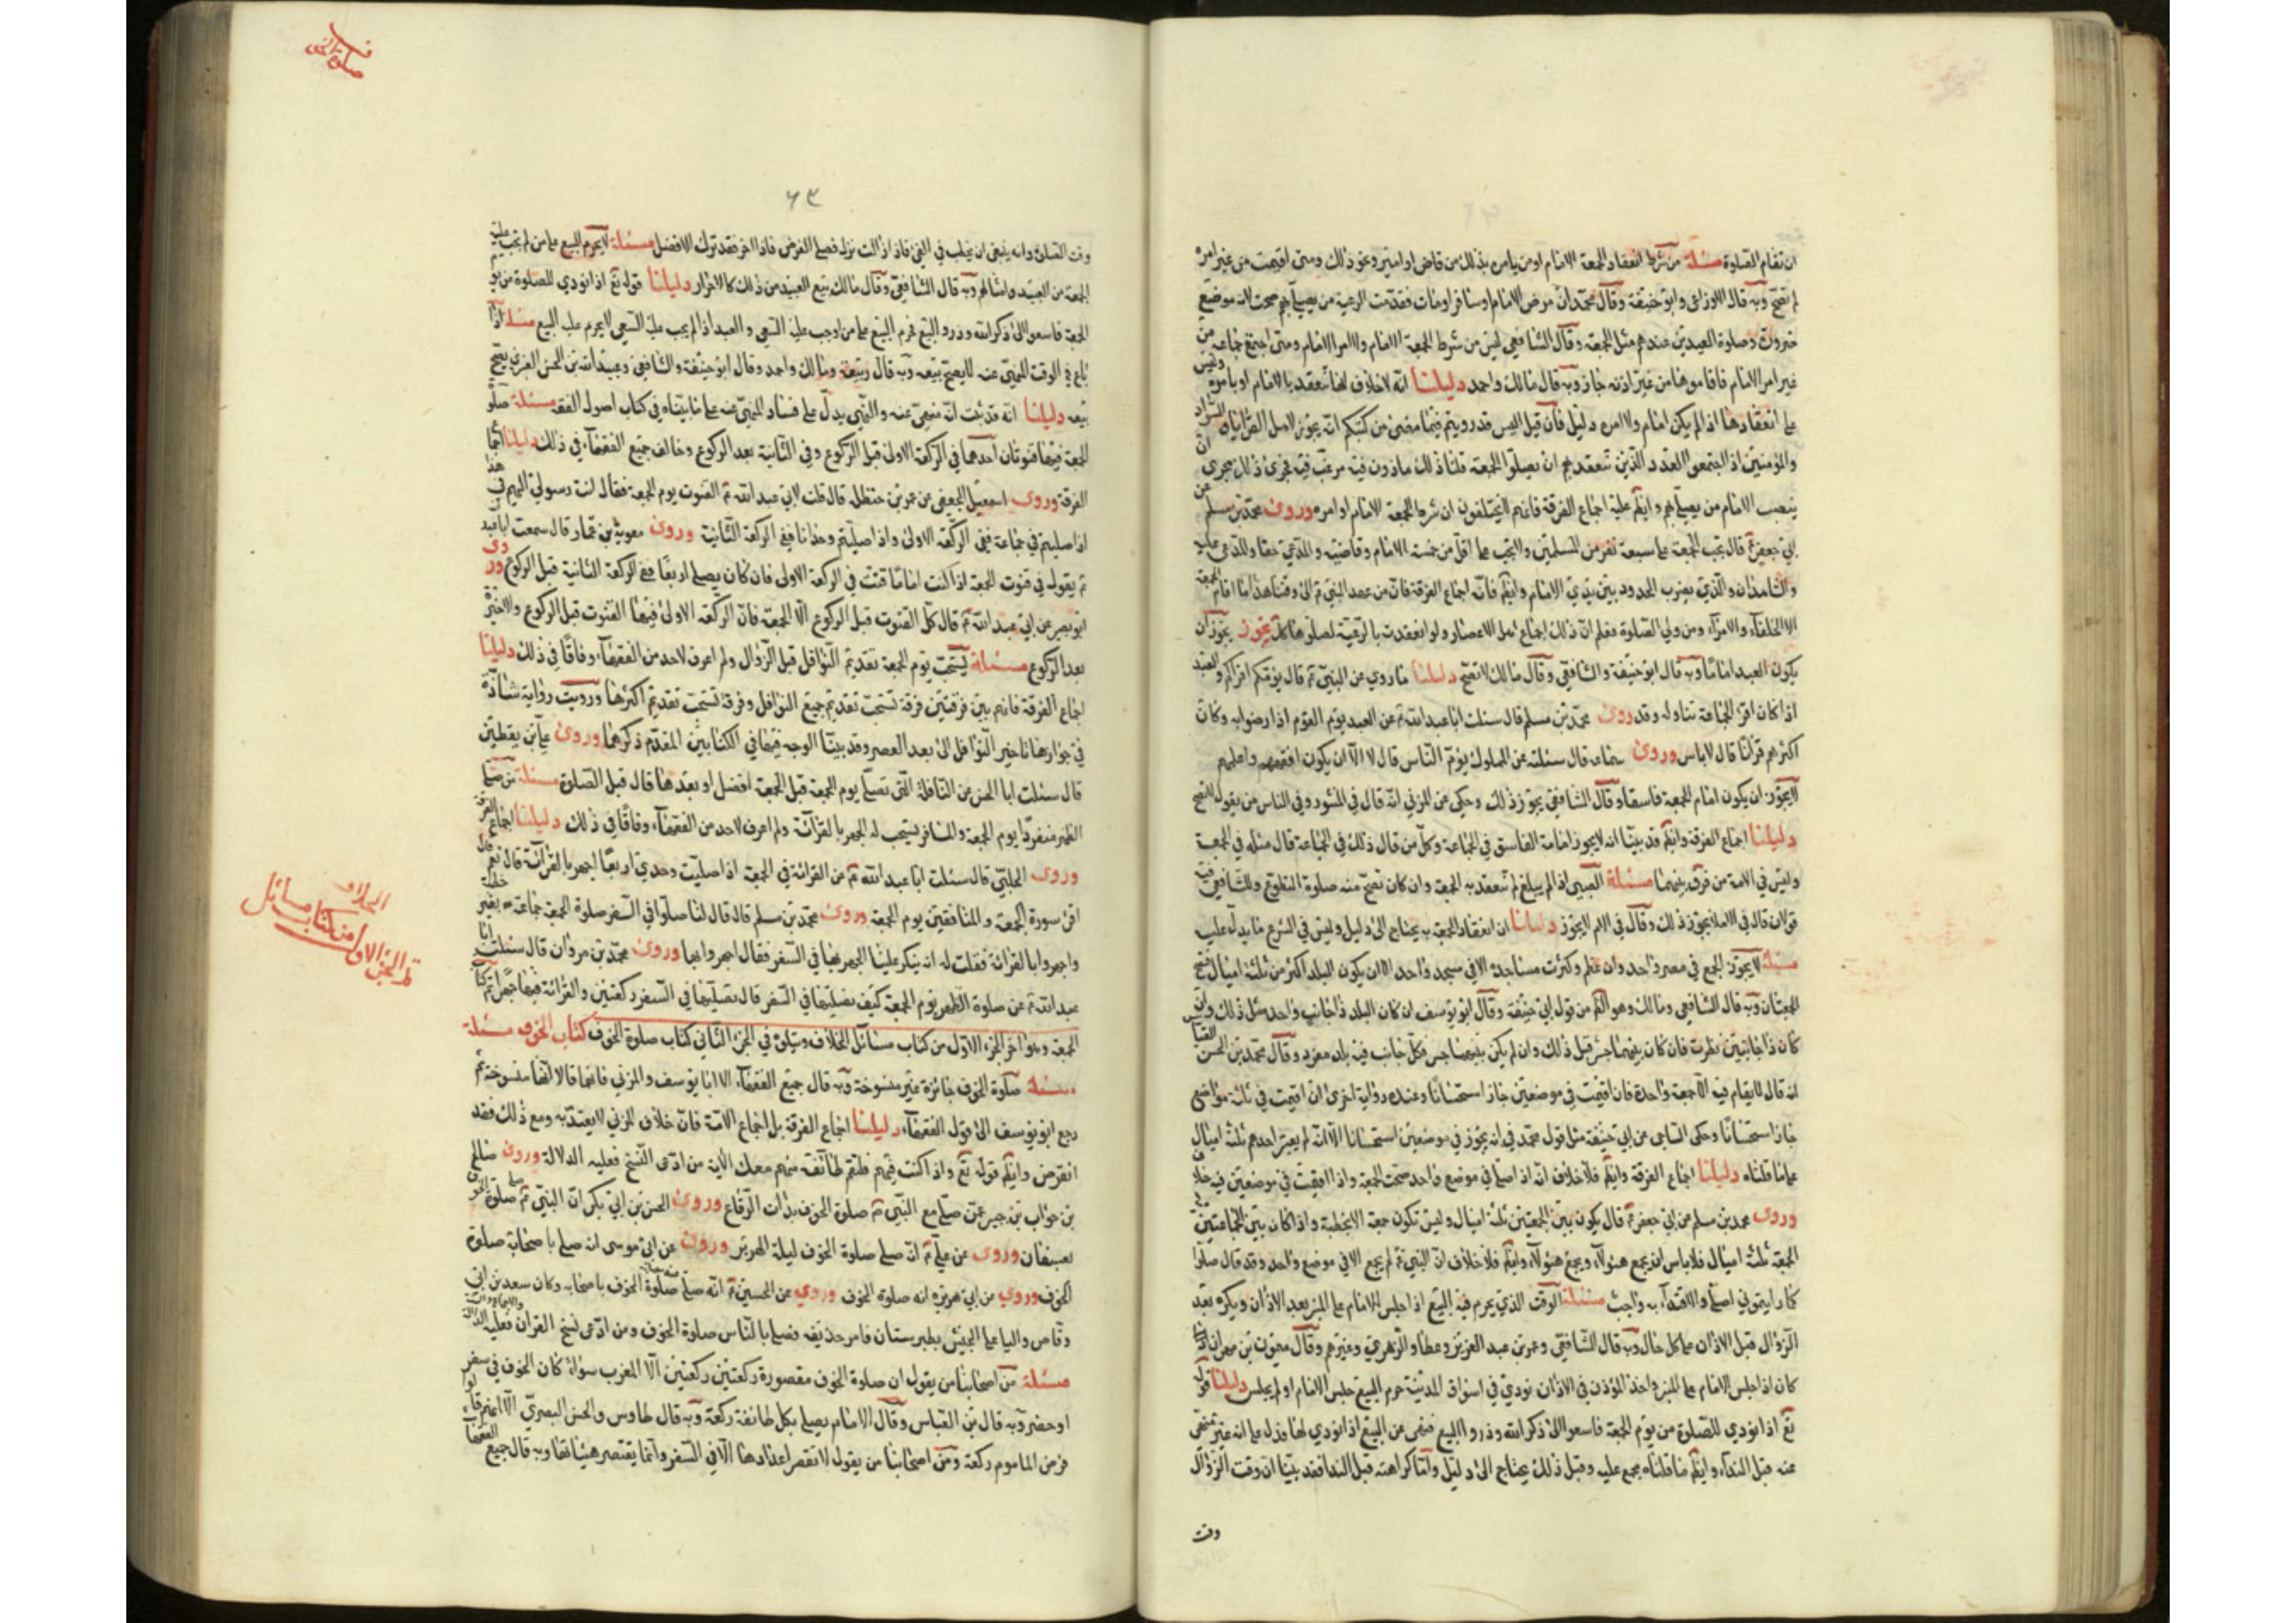 ان تقام الصلوة مسئلة من شرط انعقاد الجمعة الامام او من يامره بذلك من قاض او امير ونحو ذلك ومتى اقيمت من غير امره
لم تصح وبه قال الاوزاعى وابو حنيفة وقال محمد ان مرض الامام او سافر او مات فقدمت الرعية من يصلي بهم صحت لانه موضع
ضرورة وصلوة العيدين عندهم مثل الجمعة وقال الشافعي ليس من شرط الجمعة الامام ولا امر الامام ومتى اجتمع جماعة من
غير امر الامام فاقاموها من غير اذنه جاز وبه قال مالك واحمد دليلنا انه لا خلاف انها تنعقد بالامام او بامره وليس
على انعقادها اذا لم يكن امام ولا امره دليل فان قيل اليس قد رويتم فيما مضى من كتبكم انه يجوز لاهل القرايا والسواد
والمؤمنين اذا اجتمعوا العدد الذين تنعقد بهم ان يصلوا الجمعة قلنا ذلك ماذون فيه مرغب فيه فجرى ذلك مجرى ان
ينصب الامام من يصلي بهم وايضا عليه اجماع الفرقة فانهم لا يختلفون ان شرط الجمعة الامام او امره وروى محمد بن مسلم عن
ابي جعفر ع قال تجب الجمعة على سبعة نفر من المسلمين ولا تجب على اقل من خمسة الامام وقاضيه والمدعي حقا والمدعى عليه
والشاهدان والذي يضرب الحدود بين يدي الامام وايضا فانه اجماع الفرقة فان من عهد النبي ع الى وقتنا هذا ما اقام الجمعة
الا الخلفاء والامراء ومن ولي الصلوة فعلم ان ذلك اجماع اهل الاعصار ولو انعقدت بالرعية لصلوها كذلك يجوز ان
يكون العبد اماما وبه قال ابو حنيفة والشافعي وقال مالك لا تصح دليلنا ما روي عن النبي ع قال يؤمكم اقرأكم والعبد
اذا كان اقرأ الجماعة تناوله وقد روى محمد بن مسلم قال سئلت ابا عبد الله ع عن العبد يؤم القوم اذا رضوا به وكان
اكثرهم قرانا قال لا باس وروى سماعة قال سئلته عن المملوك يؤم الناس قال لا الا ان يكون افقههم واعلمهم
لا يجوز ان يكون امام الجمعة فاسقا وقال الشافعي يجوز ذلك وحكي عن المزني انه قال في المنثور وفي الناس من يقول لا تصح
دليلنا اجماع الفرقة وايضا قد بينا انه لا يجوز امامة الفاسق في الجماعة وكل من قال ذلك في الجماعة قال مثله في الجمعة
وليس في الامة من فرق بينهما مسئلة الصبي اذا لم يبلغ لم تنعقد به الجمعة وان كان تصح منه صلوة التطوع وللشافعي فيه
قولان قال في الاملا يجوز ذلك وقال في الام لا يجوز دليلنا ان انعقاد الجمعة به يحتاج الى دليل وليس في الشرع ما يدل عليه
مسئلة لا يجوز الجمع في مصر واحد وان عظم وكثرت مساجده الا في مسجد واحد الا ان يكون البلد اكثر من ثلثة اميال فتصح
الجمعتان وبه قال الشافعي ومالك وهو الظاهر من قول ابي حنيفة وقال ابو يوسف ان كان البلد ذا جانب واحد مثل ذلك وان
كان ذا جانبين نظرت فان كان بينهما جسر قبل ذلك وان لم يكن بينهما جسر فكل جانب فيه بلد مفرد وقال محمد بن الحسن القياس
انه قال لا يقام فيه الا جمعة واحدة فان اقيمت في موضعين جاز استحسانا وعنده رواية اخرى ان اقيمت في ثلثة مواضع
جاز استحسانا وحكى الساجي عن ابي حنيفة مثل قول محمد في انه يجوز في موضعين استحسانا الا انه لم يعتبر احدهم ثلثة اميال
على ما قلناه دليلنا اجماع الفرقة وايضا فلا خلاف انه اذا صلى في موضع واحد صحت الجمعة واذا اقيمت في موضعين فيه خلاف
وروى محمد بن مسلم عن ابي جعفر ع قال يكون بين الجمعتين ثلثة اميال وليس تكون جمعة الا بخطبة واذا كان بين الجماعتين في
الجمعة ثلثة اميال فلا باس ان يجمع هؤلاء ويجمع هؤلاء وايضا فلا خلاف ان النبي ع لم يجمع الا في موضع واحد وقد قال صلوا
كما رايتموني اصلي والاقتداء به واجب مسئلة الوقت الذي يحرم فيه البيع اذا جلس الامام على المنبر بعد الاذان ويكره بعد
الزوال قبل الاذان على كل حال وبه قال الشافعي وعمر بن عبد العزيز وعطا والزهري وغيرهم وقال
كان اذا جلس الامام على المنبر واخذ المؤذن في الاذان نودي في اسواق المدينة حرم البيع جلس الامام او لم يجلس دليلنا قوله
تع اذا نودي للصلوة من يوم الجمعة فاسعوا الى ذكر الله وذروا البيع فنهى عن البيع اذا نودي لها فدل على انه غير منهي
عنه قبل النداء وايضا ما قلناه مجمع عليه وقبل ذلك يحتاج الى دليل واما كراهته قبل الندا فقد بينا ان وقت الزوال
وقت
صلوة الخوف
٦٣
وقت الصلوة وانه ينبغي ان يخطب في الفئ فاذا زالت نزل فصلى الفرض فاذا اخر فقد ترك الافضل مسئلة لا يحرم البيع على من لم تجب عليه
الجمعة من العبيد وامثالهم وبه قال الشافعي وقال مالك يمنع العبيد من ذلك كالاحرار دليلنا قوله تع اذا نودي للصلوة من يوم
الجمعة فاسعوا الى ذكر الله وذروا البيع فحرم البيع على من اوجب عليه السعي والعبد اذا لم يجب عليه السعي لا يحرم عليه البيع مسئلة اذا
باع في الوقت المنهي عنه لا يصح بيعه وبه قال ربيعة ومالك واحمد وقال ابو حنيفة والشافعي وعبيد الله بن الحسن العنبري يصح
بيعه دليلنا انه قد ثبت انه منهي عنه والنهي يدل على فساد المنهي عنه على ما بيناه في كتاب اصول الفقه مسئلة صلوة
الجمعة فيها قنوتان احدهما في الركعة الاولى قبل الركوع وفي الثانية بعد الركوع وخالف جميع الفقهاء في ذلك دليلنا اجماع
الفرقة وروى اسمعيل الجعفي عن عمر بن حنظلة قال قلت لابي عبد الله ع القنوت يوم الجمعة فقال انت رسولي اليهم في هذا
اذا صليتم في جماعة ففي الركعة الاولى واذا صليتم وحدانا ففي الركعة الثانية وروى معوية بن عمار قال سمعت ابا عبد الله
ع يقول في قنوت الجمعة اذا كنت اماما قنت في الركعة الاولى فان كان يصلي اربعا ففي الركعة الثانية قبل الركوع وروى
ابو بصير عن ابي عبد الله ع قال كل القنوت قبل الركوع الا الجمعة فان الركعة الاولى فيها القنوت قبل الركوع والاخيرة
بعد الركوع مسئلة يستحب يوم الجمعة تقديم النوافل قبل الزوال ولم اعرف لاحد من الفقهاء وفاقا في ذلك دليلنا
اجماع الفرقة فانهم بين فرقتين فرقة تستحب تقديم جميع النوافل وفرقة تستحب تقديم اكثرها ورويت رواية شاذة
في جوازها تاخير النوافل الى بعد العصر وقد بينا الوجه فيها في الكتابين المقدم ذكرهما وروى علي بن يقطين
قال سئلت ابا الحسن عن النافلة التي تصلي يوم الجمعة قبل الجمعة افضل او بعدها قال قبل الصلوة مسئلة من صلى
الظهر منفردا يوم الجمعة والمسافر يستحب له الجهر بالقرائة ولم اعرف لاحد من الفقهاء وفاقا في ذلك دليلنا اجماع الفرقة
وروى الحلبي قال سئلت ابا عبد الله ع عن القرائة في الجمعة اذا صليت وحدي اربعا اجهر بالقرائة قال نعم قال
اقرء سورة الجمعة والمنافقين يوم الجمعة وروى محمد بن مسلم قال قال لنا صلوا في السفر صلوة الجمعة جماعة بغير خطبة
واجهروا بالقرائة فقلت له انه ينكر علينا الجهر بها في السفر فقال اجهروا بها وروى محمد بن مروان قال سئلت ابا
عبد الله ع عن صلوة الظهر يوم الجمعة كيف نصليها في السفر قال تصليها في السفر ركعتين والقرائة فيها جهرا تم كتاب
الجمعة وهو اخر الجزء الاول من كتاب مسائل الخلاف ويتلوه في الجزء الثاني كتاب صلوة الخوف كتاب الخوف مسئلة
مسئلة صلوة الخوف جائزة غير منسوخة وبه قال جميع الفقهاء الا ابا يوسف والمزني فانهما قالا انها منسوخة ثم
رجع ابو يوسف الى قول الفقهاء دليلنا اجماع الفرقة بل اجماع الامة فان خلاف المزني لا يعتد به ومع ذلك فقد
انقرض وايضا قوله تع واذا كنت فيهم فلتقم طائفة منهم معك الاية من ادعى النسخ فعليه الدلالة وروى صالح
بن خوات بن جبير عمن صلى مع النبي ع صلوة الخوف بذات الرقاع وروى الحسن بن ابي بكر ان النبي ع صلى صلوة الخوف
بعسفان وروى عن علي ع انه صلى صلوة الخوف ليلة الهرير وروى عن ابي موسى انه صلى باصحابه صلوة
الخوف وروي عن ابي هريرة انه صلوة الخوف وروي عن الحسين ع انه صلى صلوة الخوف باصحابه وكان سعد بن ابي
وقاص واليا على الجيش بطبرستان فامر حذيفة فصلى بالناس صلوة الخوف ومن ادعى نسخ القران فعليه الدلالة
مسئلة من اصحابنا من يقول ان صلوة الخوف مقصورة ركعتين ركعتين الا المغرب سواء كان الخوف في سفر
او حضر وبه قال بن العباس وقال الامام يصلي بكل طائفة ركعة وبه قال طاوس والحسن البصري الا انهم قالوا
فرض الماموم ركعة ومن اصحابنا من يقول لا تقصر اعدادها الا في السفر وانما يقتصر هيئاتها وبه قال جميع الفقهاء
الخلاف
من كتاب مسائل
تم الجزء الاول